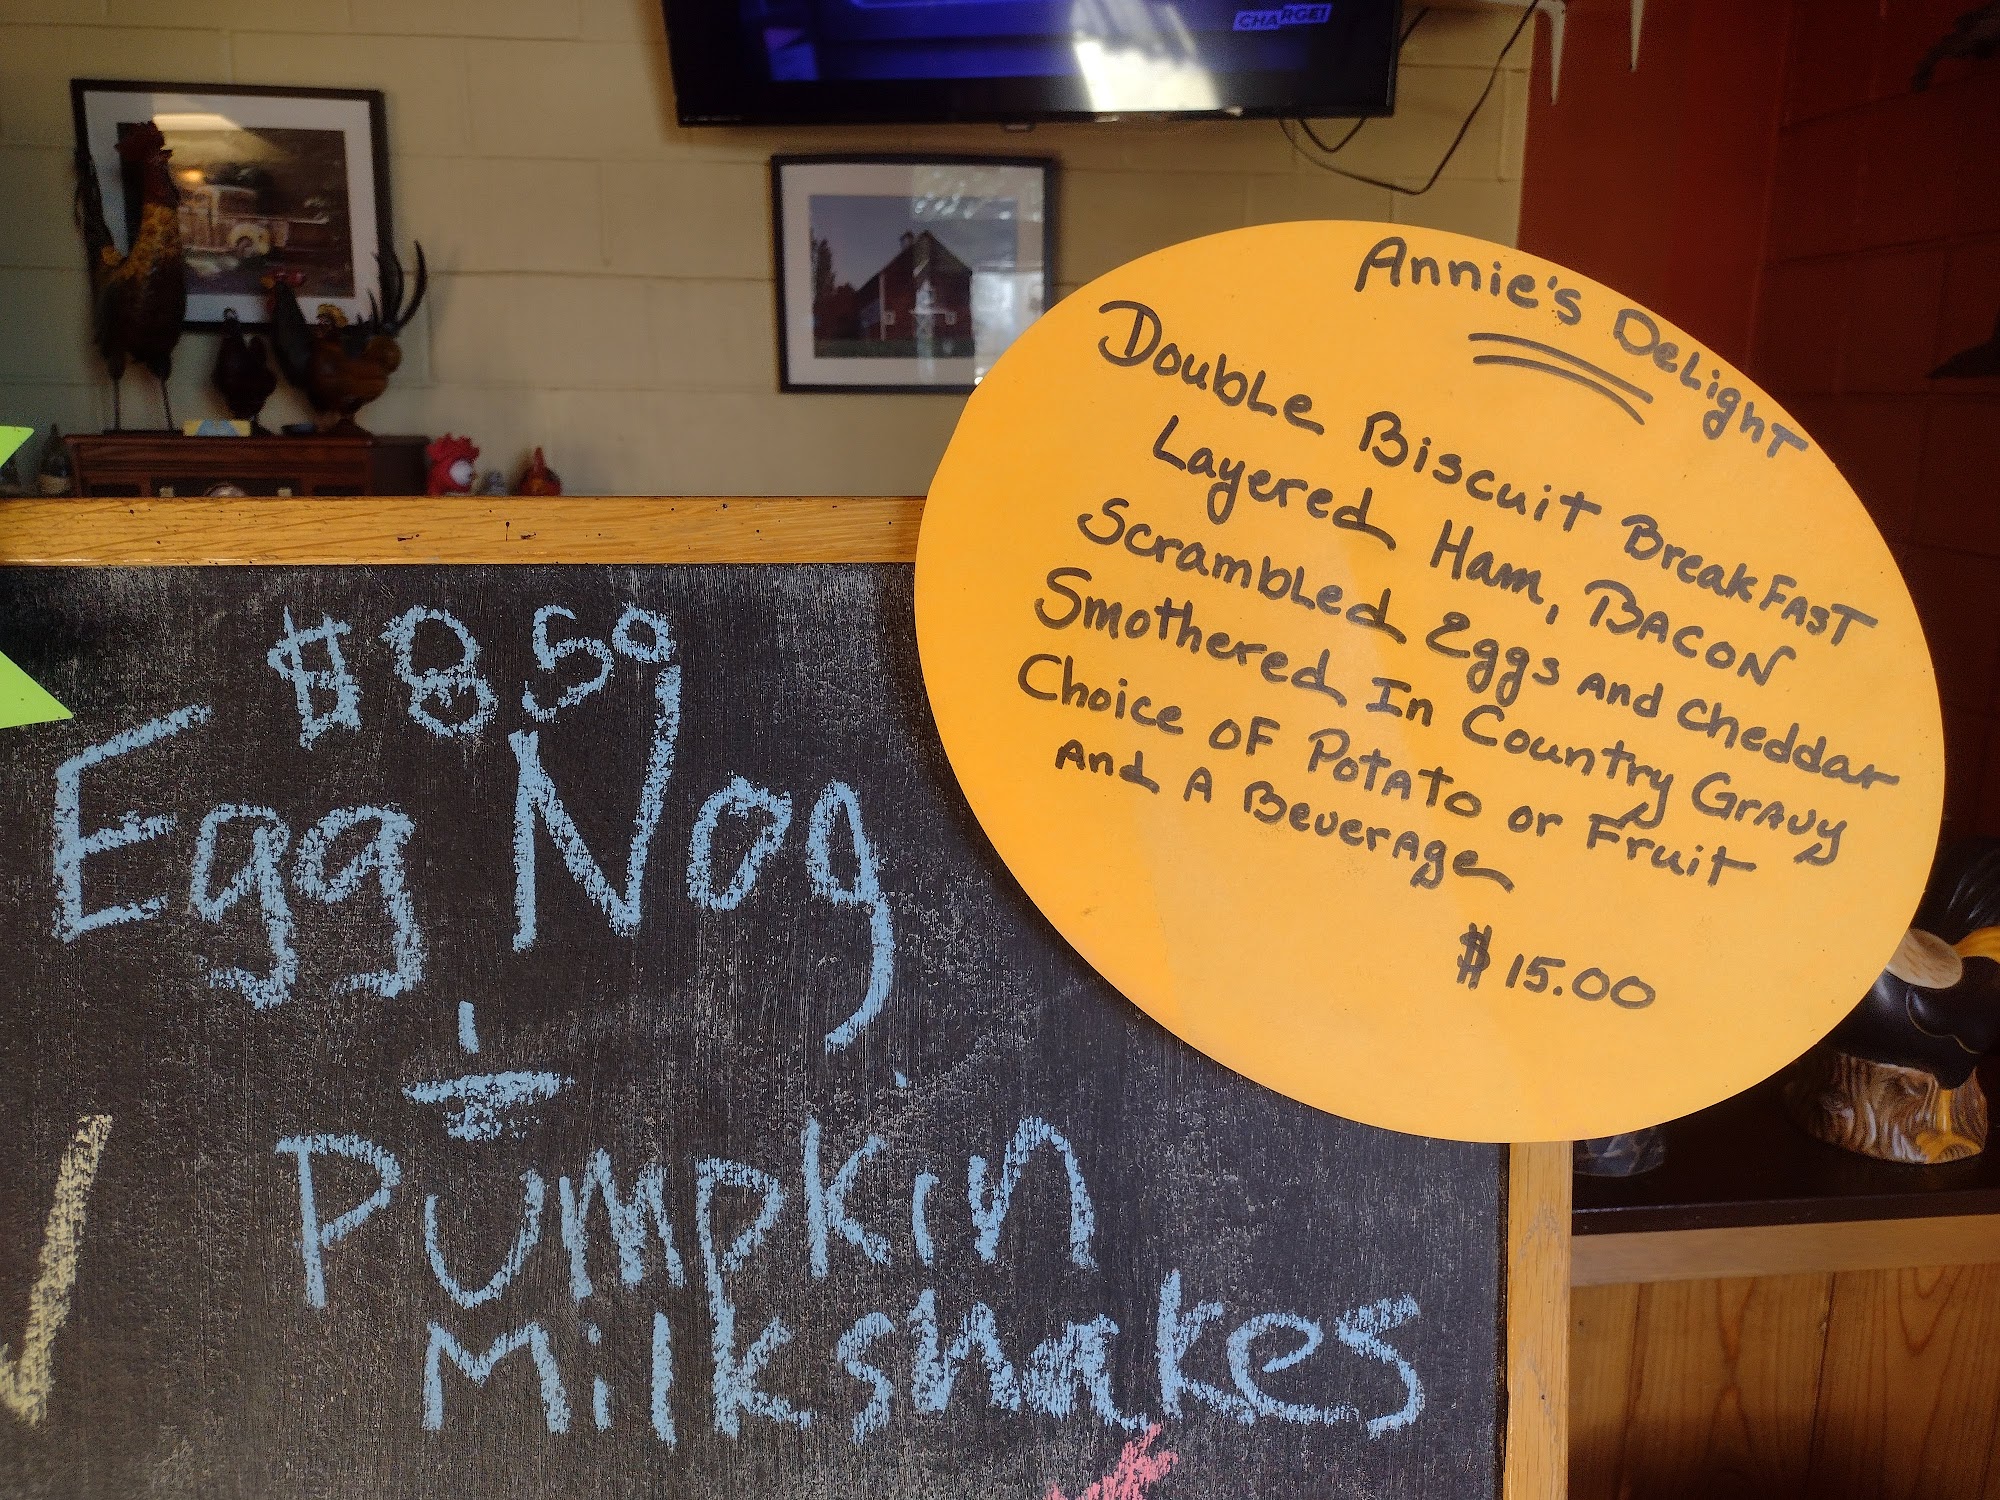 CHARGE!
Annie's Delight
Double Biscuit Breakfast
Layered Ham, Bacon
Scrambled Eggs and Cheddar
Smothered In Country Gravy
Choice of Potato or Fruit
And A Beverage
$15.00
$8.50
Egg Nog
+
Pumpkin
Milkshakes